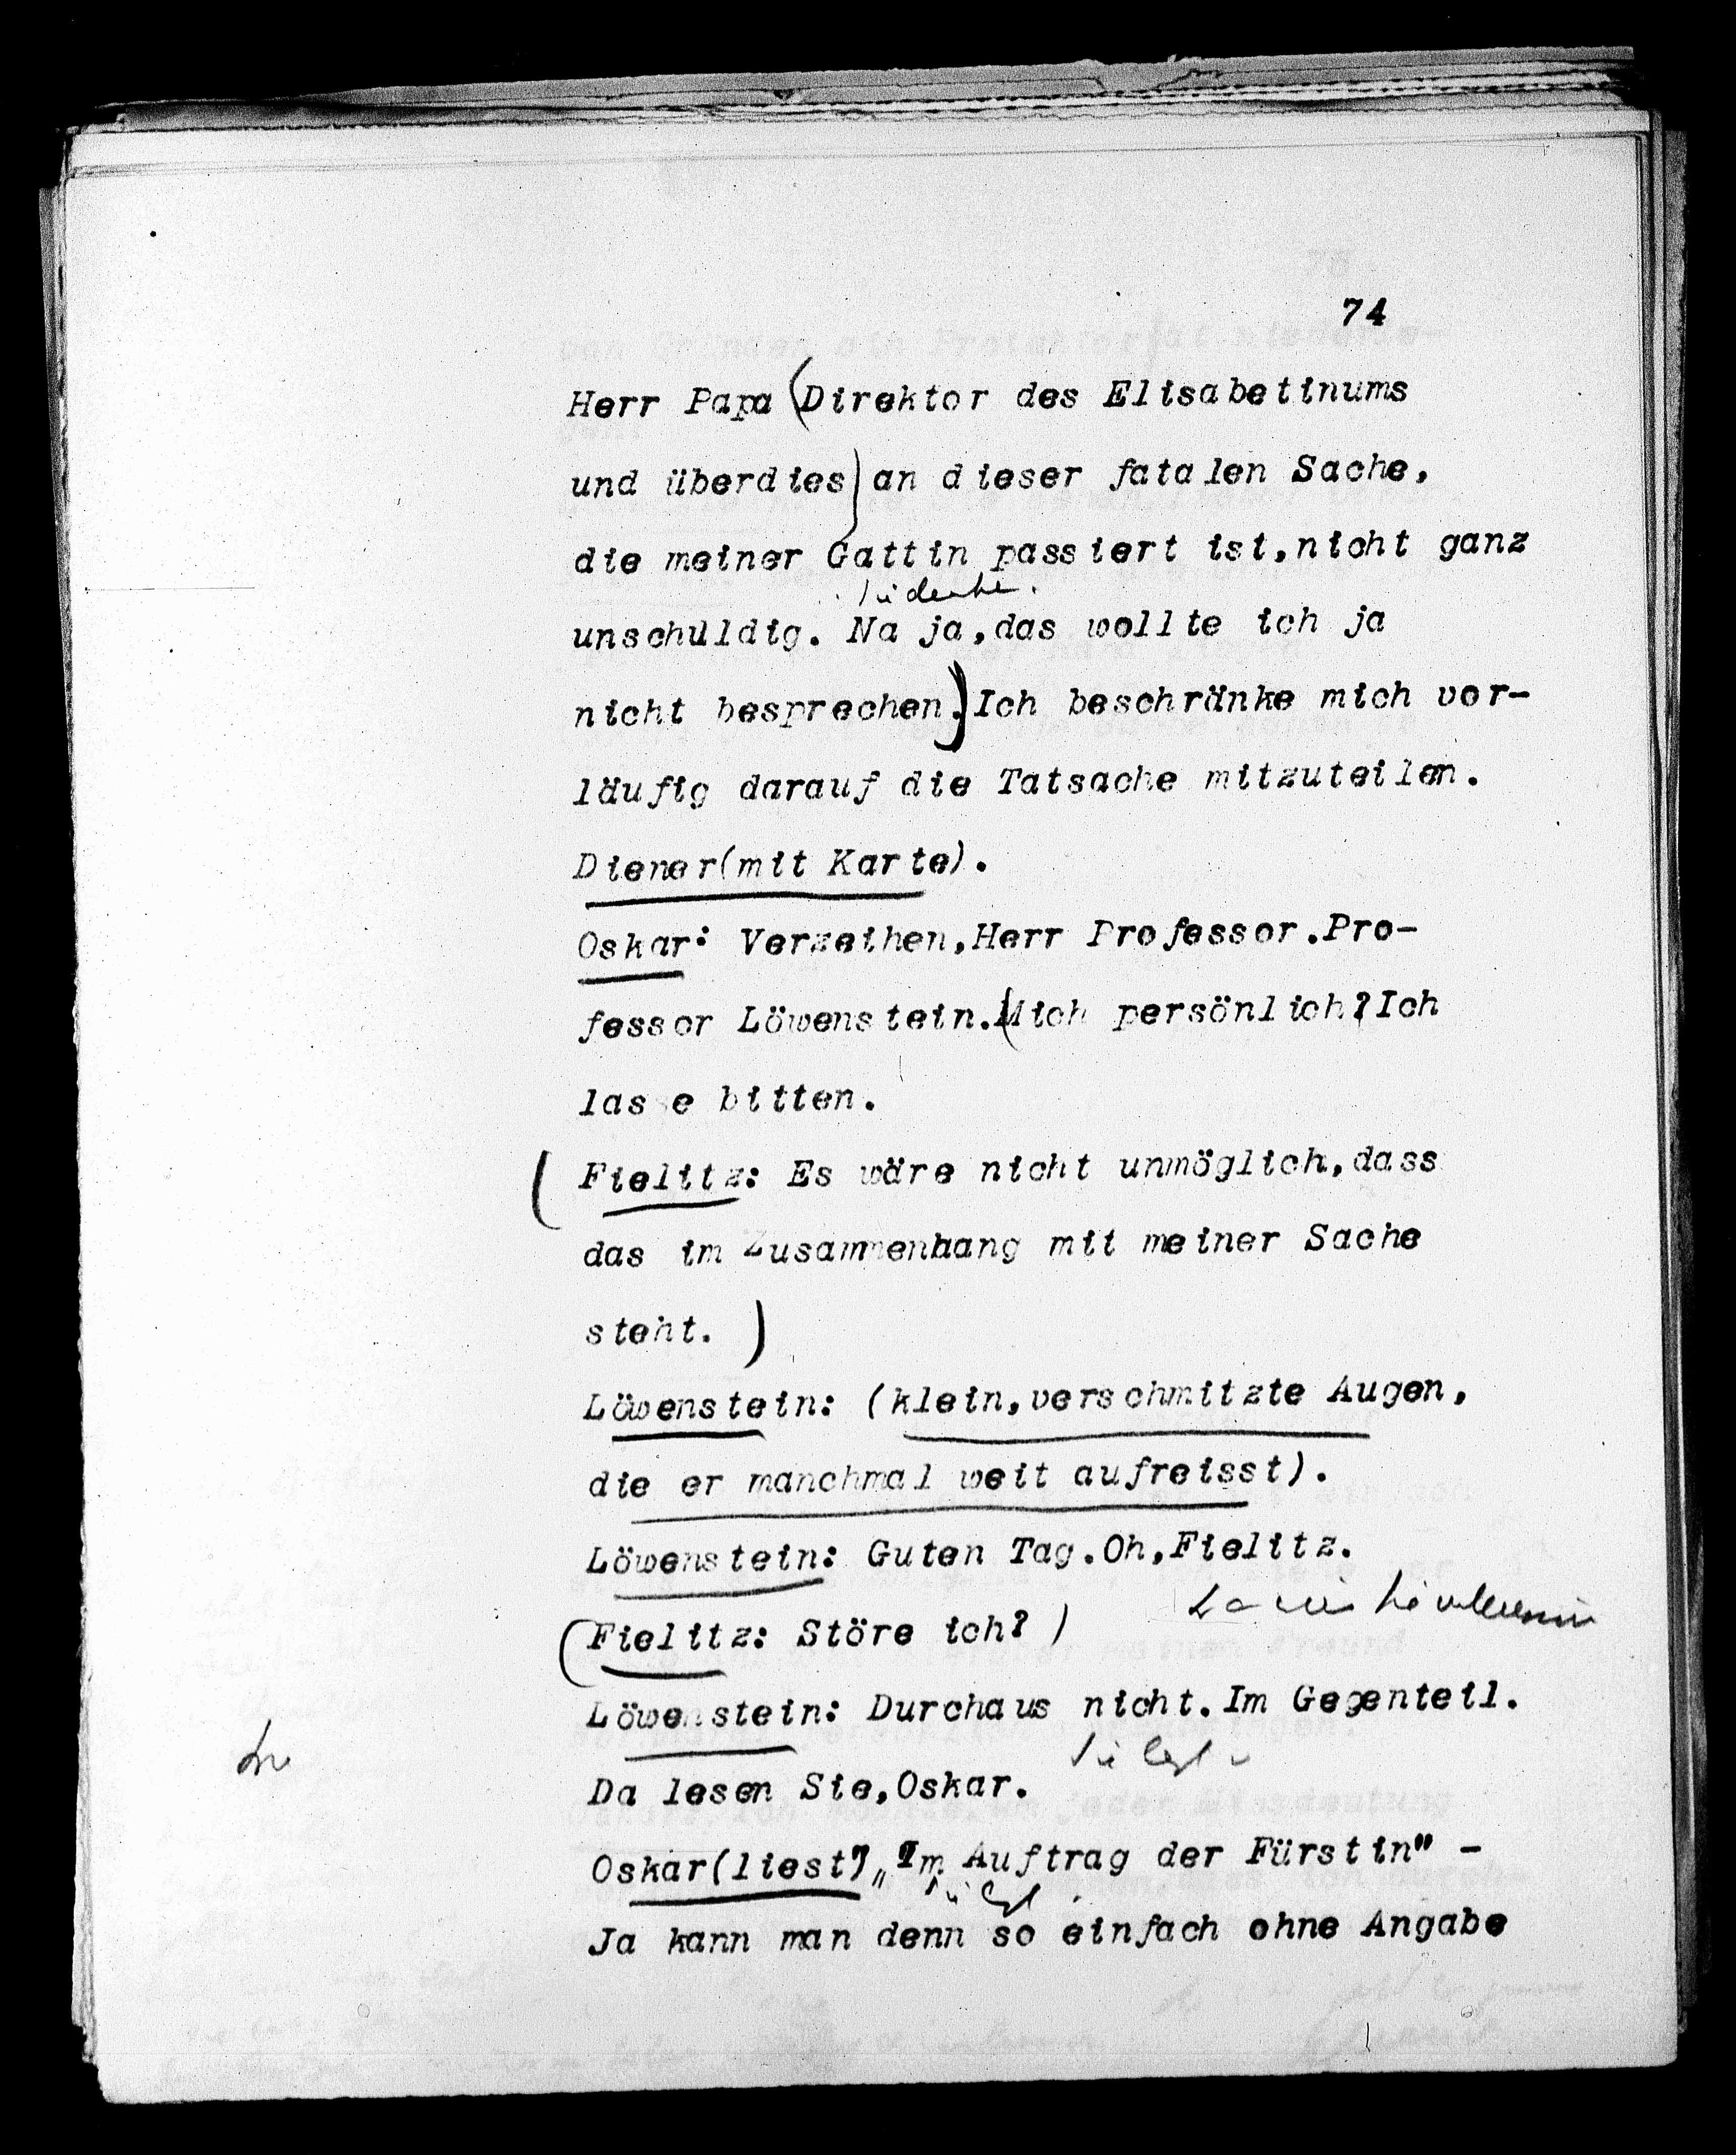 74
Herr Papa (Direktor des Elisabetinums
und überdies) an dieser fatalen Sache,
die meiner Gattin passiert ist, nicht ganz
unschuldig. Na ja, das wollte ich ja
nicht besprechen.) Ich beschränke mich vor-
läufig darauf die Tatsache mitzuteilen.
Diener (mit Karte).
Oskar: Verzeihen, Herr Professor. Pro-
fessor Löwenstein. (Mich persönlich? Ich
lasse bitten.
(Fielitz: Es wäre nicht unmöglich, dass
das im Zusammenhang mit meiner Sache
steht. )
Löwenstein: (klein, verschmitzte Augen,
die er manchmal weit aufreisst).
Löwenstein: Guten Tag. Oh, Fielitz.
(Fielitz: Störe ich? )
Löwenstein: Durchaus nicht. Im Gegenteil.
Da lesen Sie, Oskar.
Oskar (liest) „Im Auftrag der Fürstin" -
Ja kann man denn so einfach ohne Angabe